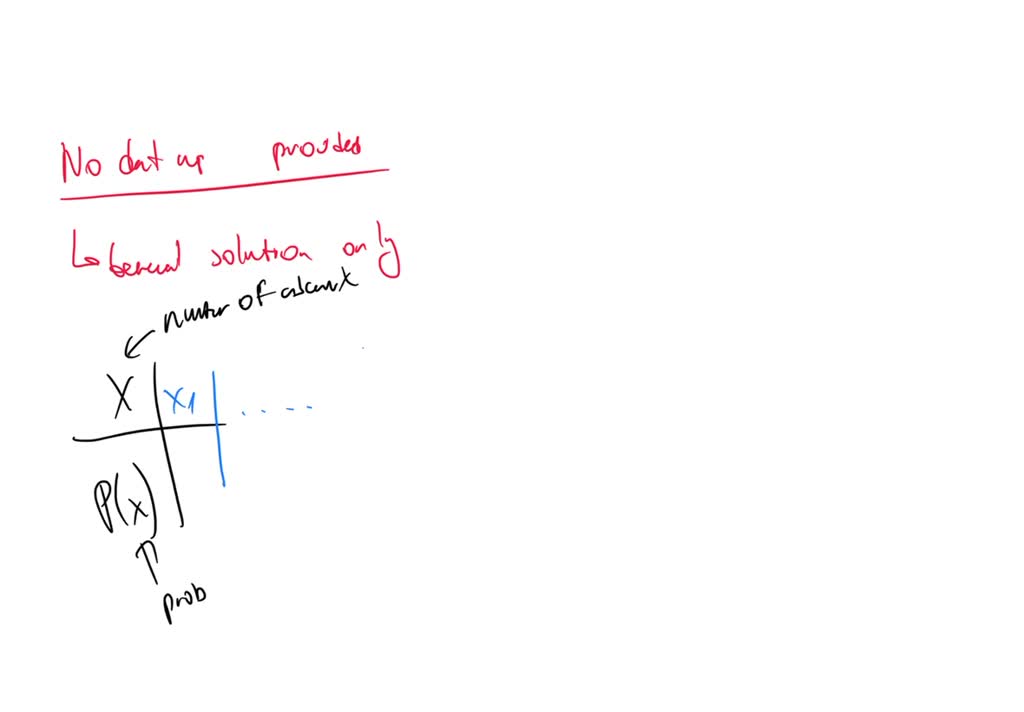 No dat up provided
↳ General solution only
number of
X x1 .....
P(x)
↑
prob